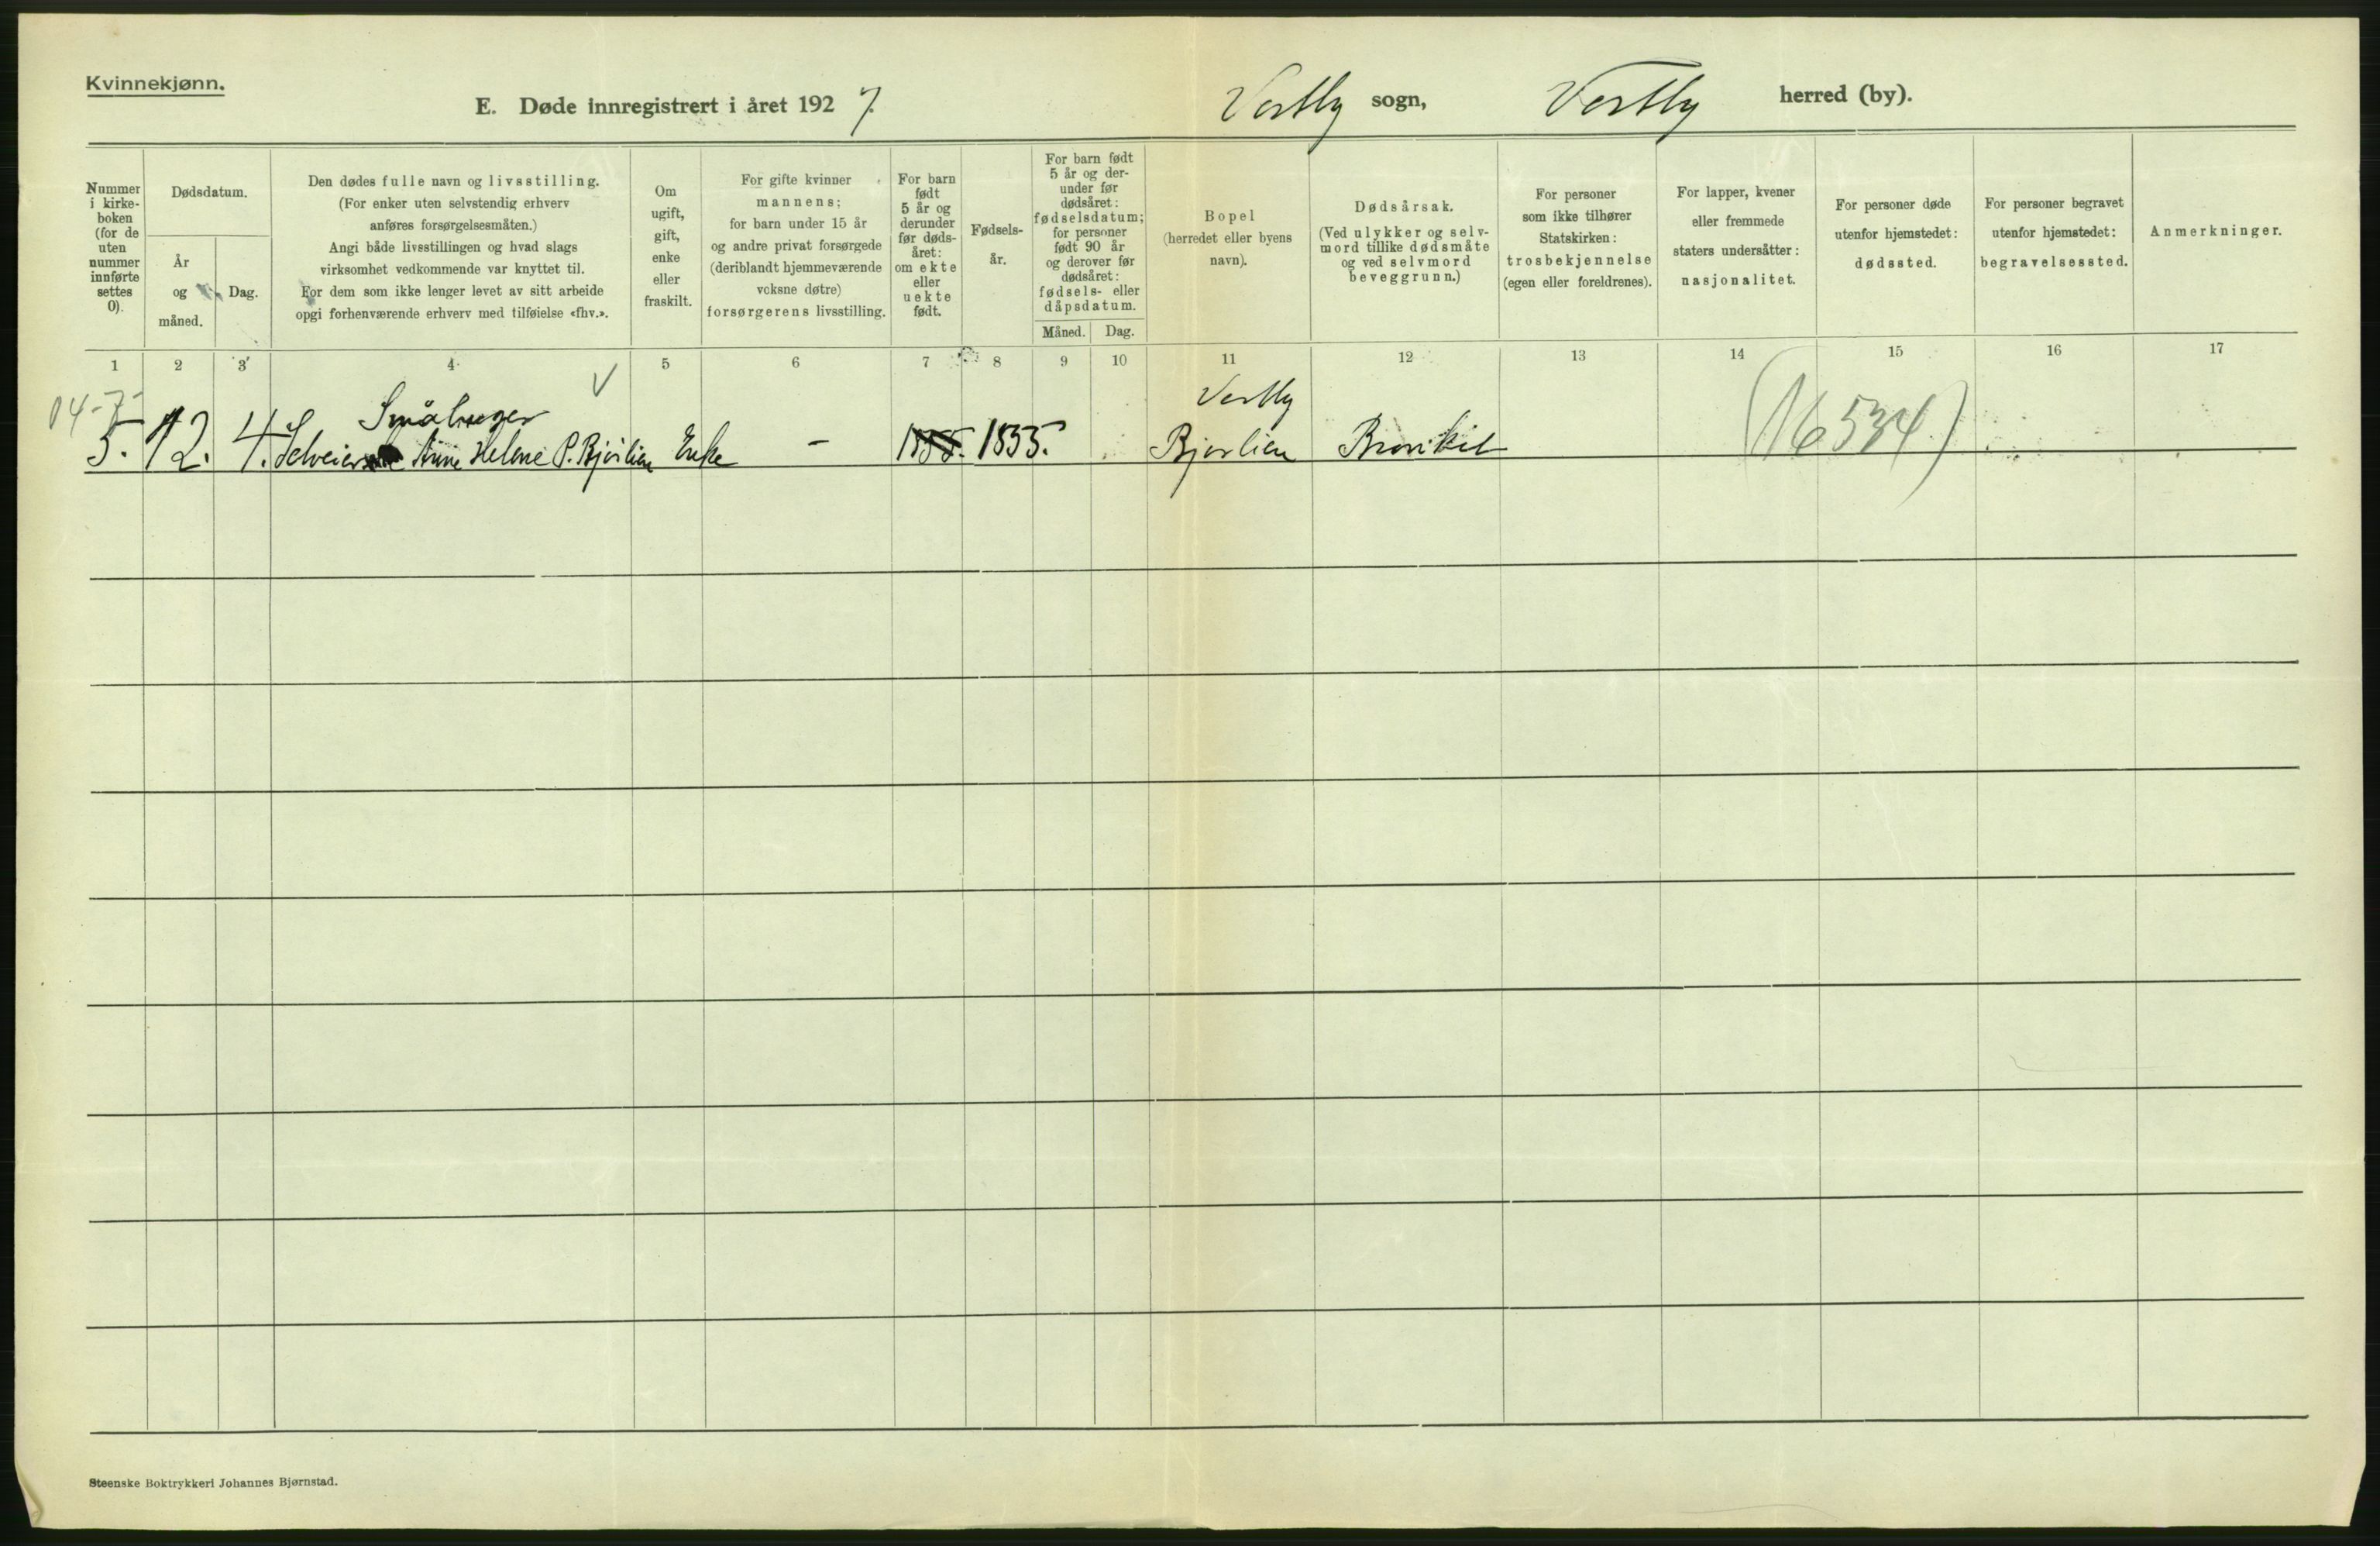 Kvinnekjønn.
E. Døde innregistrert i året 1927.
Vestby sogn, Vestby herred (by).
Nummer i kirke- boken (for de uten nummer innførte settes 0).
Dødsdatum.
År og måned.
Dag.
Den dødes fulle navn og livsstilling.
(For enker uten selvstendig erhverv
anføres forsørgelsesmåten.)
Angi både livsstillingen og hvad slags
virksomhet vedkommende var knyttet til.
For dem som ikke lenger levet av sitt arbeide
opgi forhenværende erhverv med tilføielse «fhv.».
Om
ugift,
gift,
enke
eller
fraskilt.
For gifte kvinner
mannens;
for barn under 15 år
og andre privat forsørgede
(deriblandt hjemmeværende
voksne døtre)
forsørgerens livsstilling.
For barn
født
5 år og
derunder
før døds-
året:
om ekte
eller
uekte
født.
Fødsels-
år.
For barn født
5 år og der-
under før
dødsåret:
fødselsdatum;
for personer
født 90 år
og derover før
dødsåret:
fødsels- eller
dåpsdatum.
Måned. Dag.
Bopel
(herredet eller byens
navn).
Dødsårsak.
(Ved ulykker og selv-
mord tillike dødsmåte
og ved selvmord
beveggrunn.)
For personer
som ikke tilhører
Statskirken:
trosbekjennelse
(egen eller foreldrenes).
For lapper, kvener
eller fremmede
staters undersåtter:
nasjonalitet.
For personer døde
utenfor hjemstedet:
dødssted.
For personer begravet
utenfor hjemstedet:
begravelsessted.
Anmerkninger.
1 2 3 4 5 6 7 8 9 10 11 12 13 14 15 16 17
04-7- Småbruger V Vestby
5. 12. 4. Selveier Anne Helene P. Bjørlien Enke - 1855. 1855. Bjørlien (16534)
Steenske Boktrykkeri Johannes Bjørnstad.